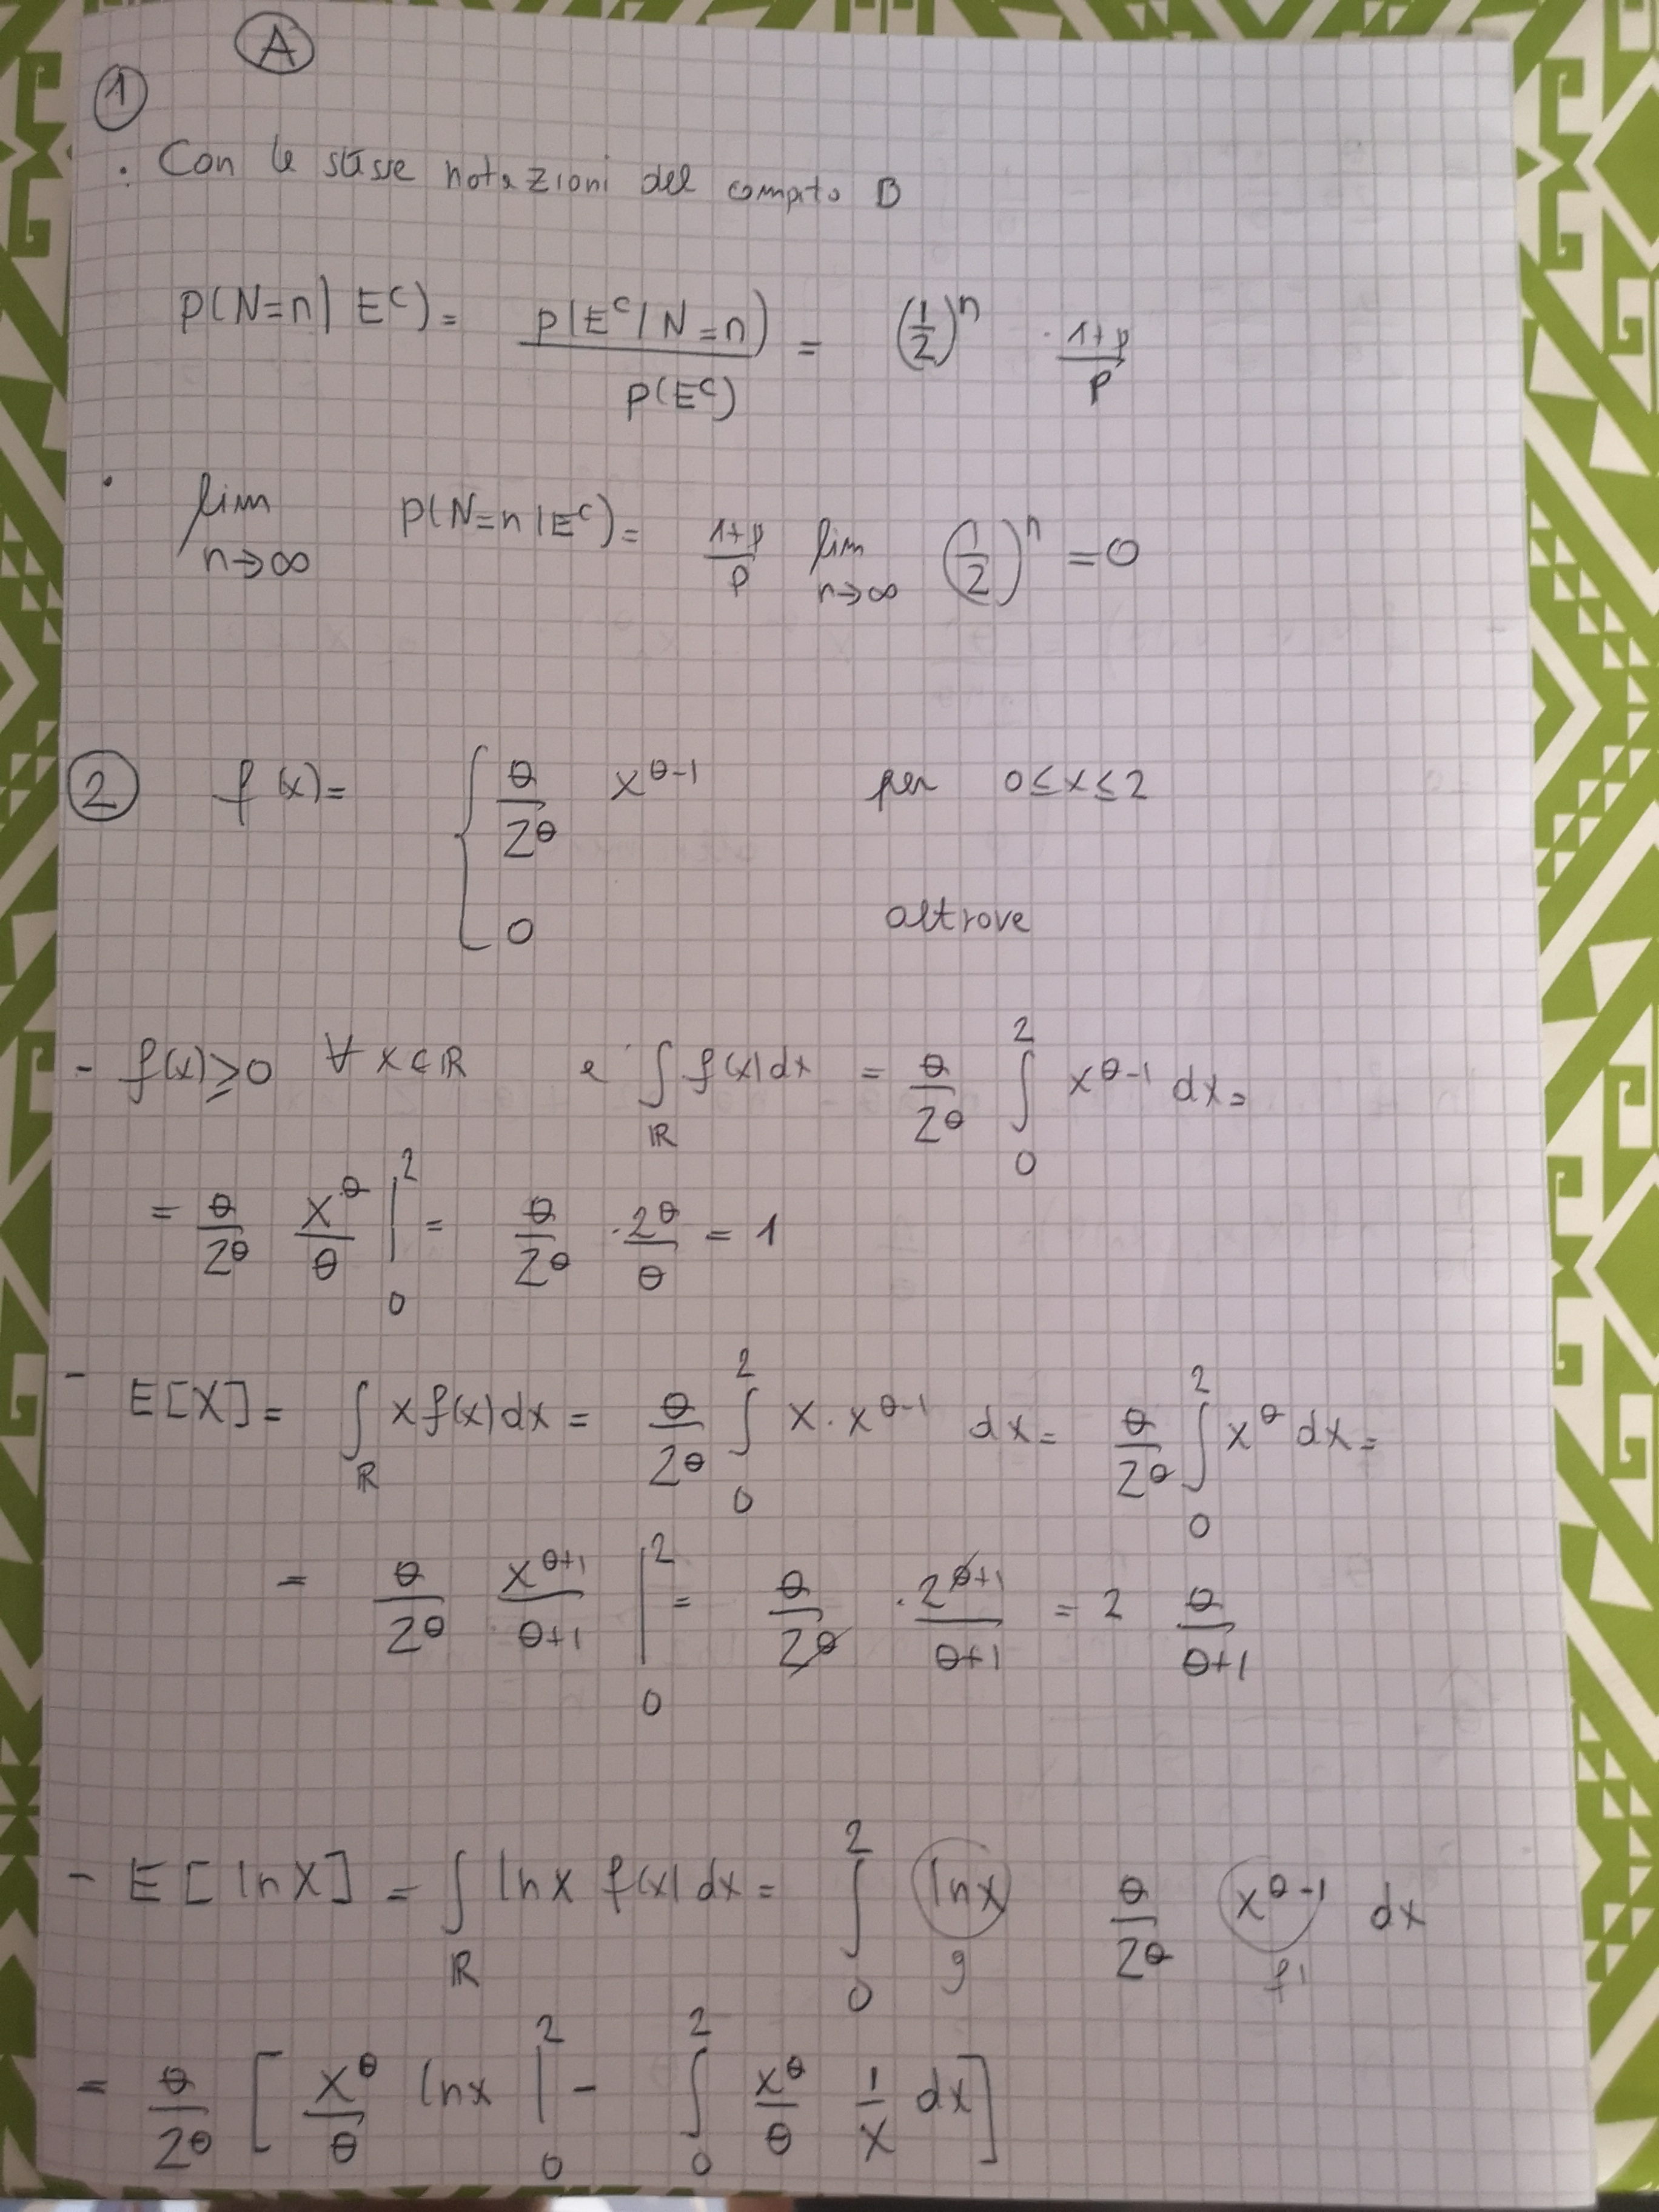 A
1
. Con le stesse notazioni del compito B
P(N=n| E^c) = P(E^c | N=n) / P(E^c) = (1/2)^n · (1+p)/p
· lim n→∞ P(N=n|E^c) = (1+p)/p lim n→∞ (1/2)^n = 0
2 f(x) = { θ/2^θ x^(θ-1) per 0≤x≤2
0 altrove
- f(x)≥0 ∀ x∈ℝ e ∫_ℝ f(x)dx = θ/2^θ ∫_0^2 x^(θ-1) dx =
= θ/2^θ x^θ/θ |_0^2 = θ/2^θ · 2^θ/θ = 1
- E[X] = ∫_ℝ x f(x)dx = θ/2^θ ∫_0^2 x · x^(θ-1) dx = θ/2^θ ∫_0^2 x^θ dx =
= θ/2^θ x^(θ+1)/(θ+1) |_0^2 = θ/2^θ · 2^(θ+1)/(θ+1) = 2 θ/(θ+1)
- E[lnX] = ∫_ℝ lnx f(x)dx = ∫_0^2 lnx θ/2^θ x^(θ-1) dx
g f'
= θ/2^θ [ x^θ/θ lnx |_0^2 - ∫_0^2 x^θ/θ 1/x dx ]